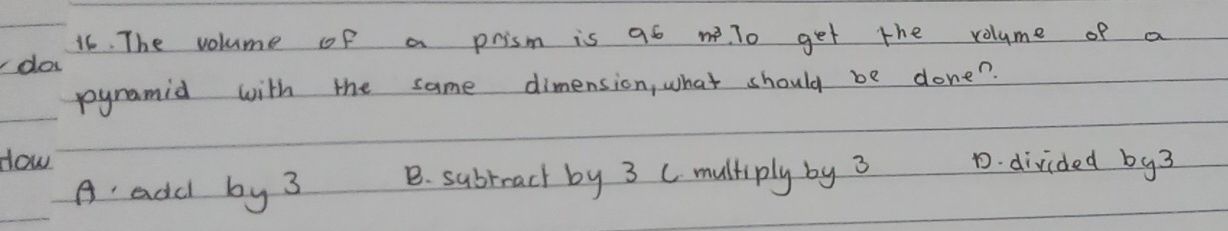 16. The volume of a prism is 96 m³. To get the volume of a
do
pyramid with the same dimension, what should be done?
How
A. add by 3 B. subtract by 3 C. multiply by 3 D. divided by 3